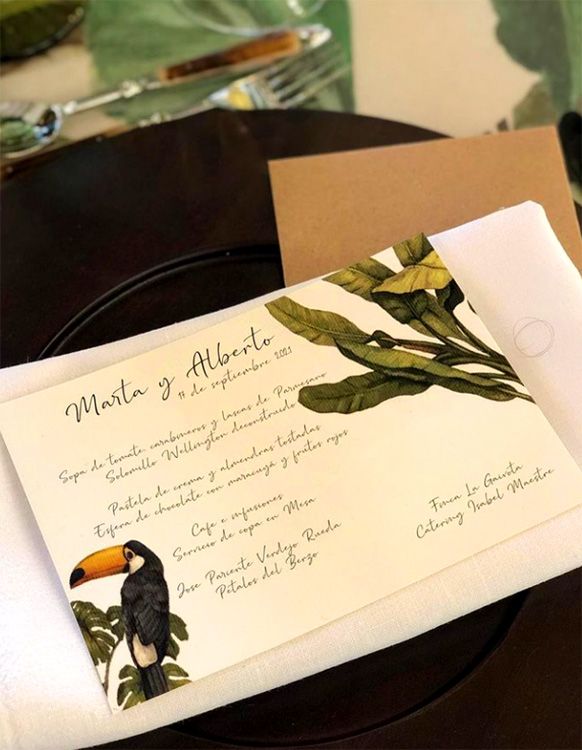 Marta y Alberto
17 de septiembre 2021
Sopa de tomate, carabineros y lascas de Parmesano
Solomillo Wellington deconstruido
Pastela de crema y almendras tostadas
Esfera de chocolate con maracuyá y frutos rojos
Cafe e infusiones
Servicio de copa en Mesa
Jose Pariente Verdejo Rueda
Pétalos del Berzo
Finca La Gaivota
Catering Isabel Maestre